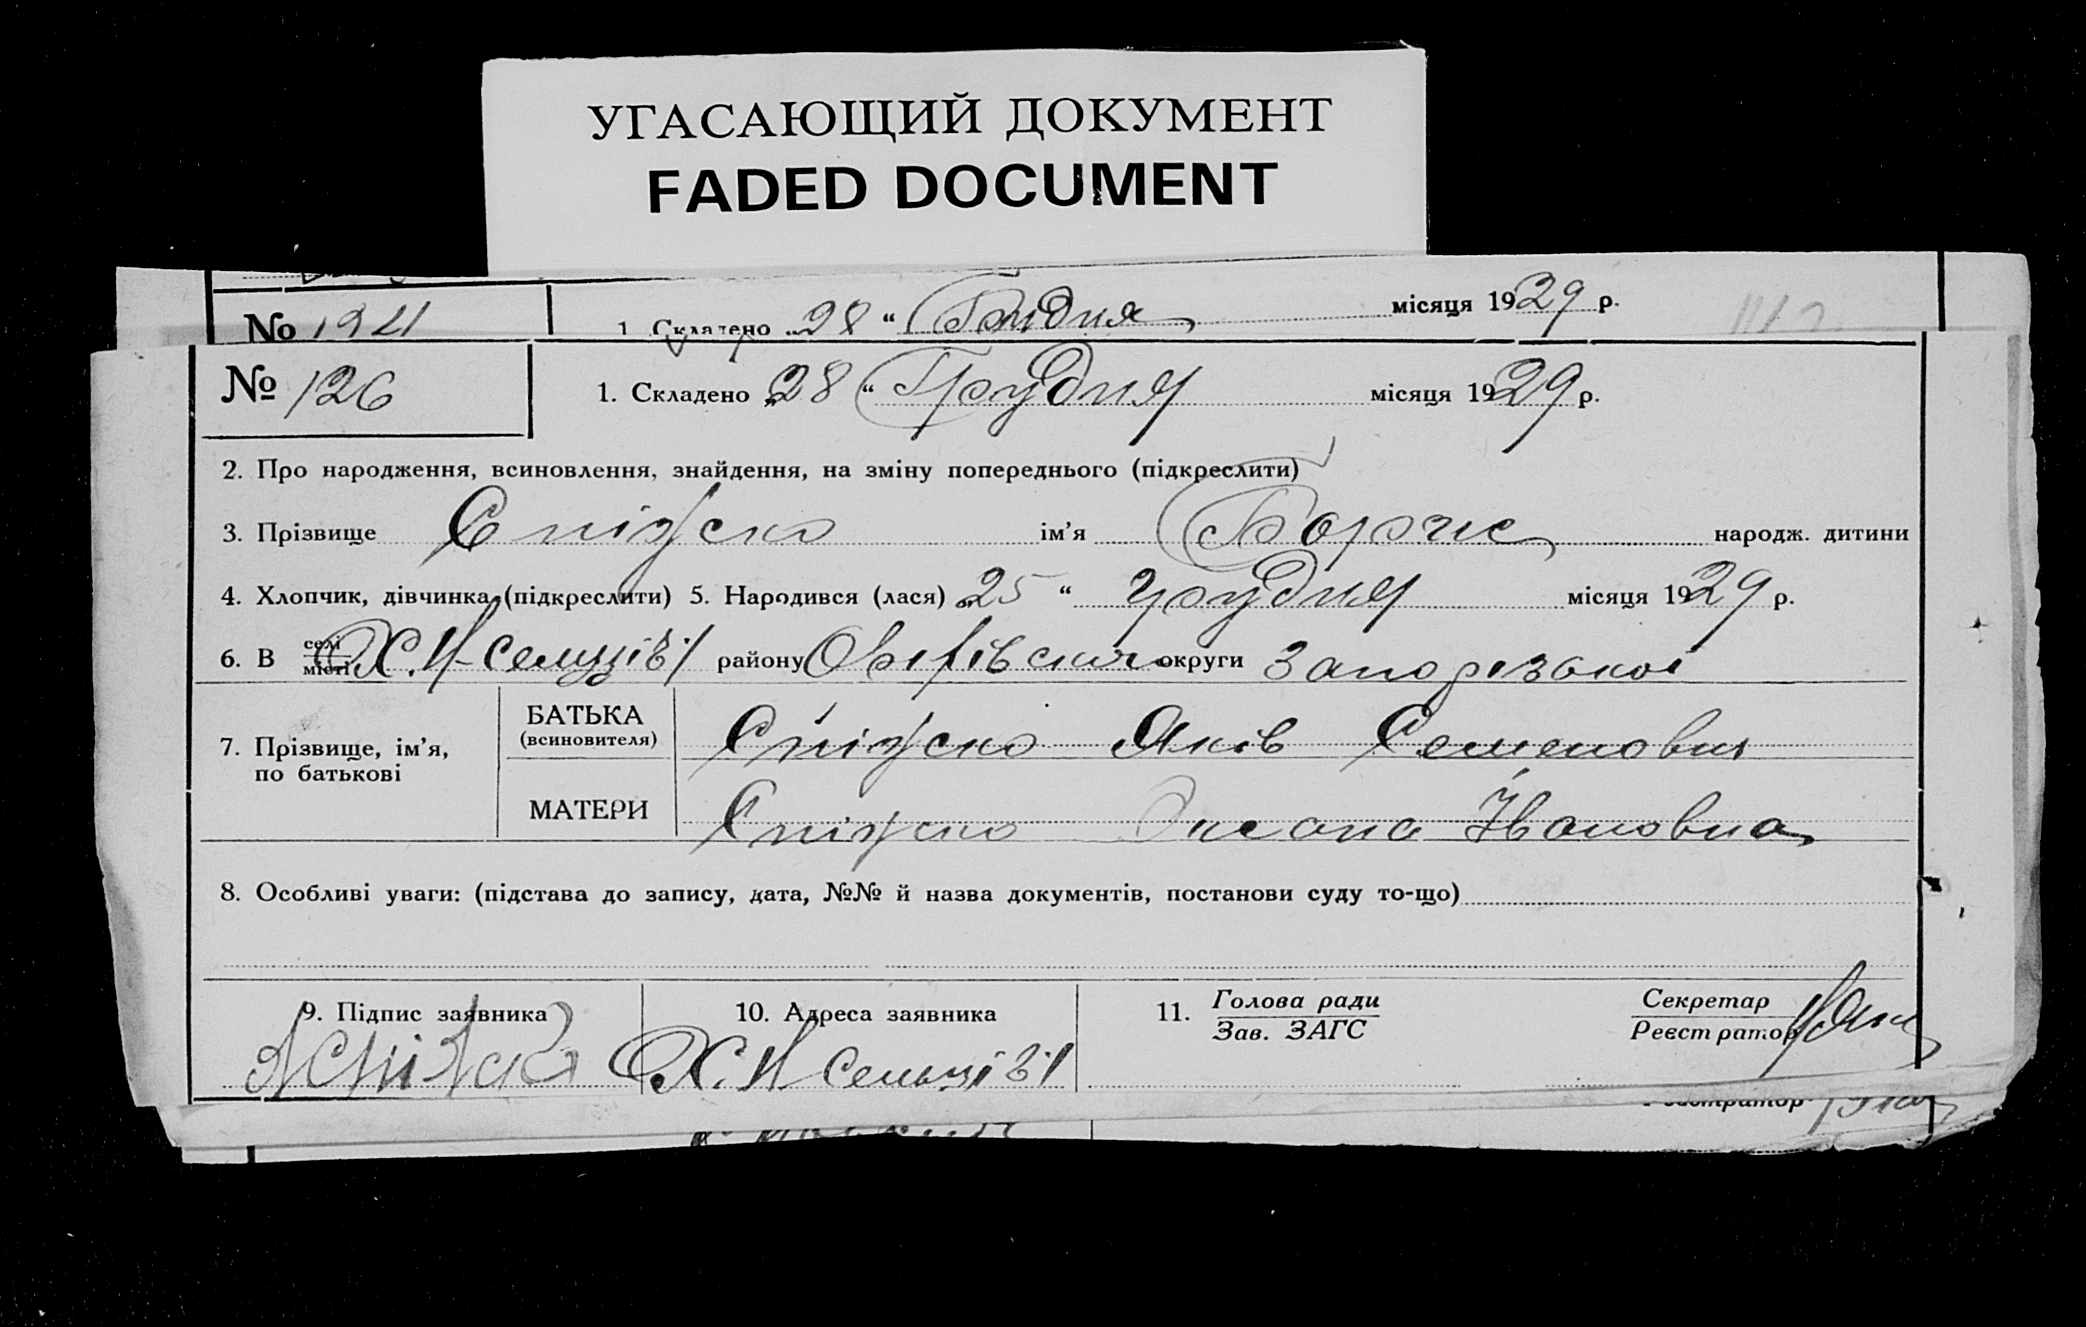 УГАСАЮЩИЙ ДОКУМЕНТ
FADED DOCUMENT
№ 1. Складено „28“ Грудня місяця 1929 р.
№ 126 1. Складено „28“ Грудня місяця 1929 р.
2. Про народження, всиновлення, знайдення, на зміну попереднього (підкреслити)
3. Прізвище ім’я Борис народж. дитини
4. Хлопчик, дівчинка (підкреслити) 5. Народився (лася) „25“ грудня місяця 1929 р.
6. В селі
місті району округи Запорізької
7. Прізвище, ім’я,
по батькові
БАТЬКА
(всиновителя)
Яків Семенович
МАТЕРИ Оксана Івановна
8. Особливі уваги: (підстава до запису, дата, №№ й назва документів, постанови суду то-що)
9. Підпис заявника 10. Адреса заявника 11. Голова ради
Зав. ЗАГС
Секретар
Реєстратор
Реєстратор